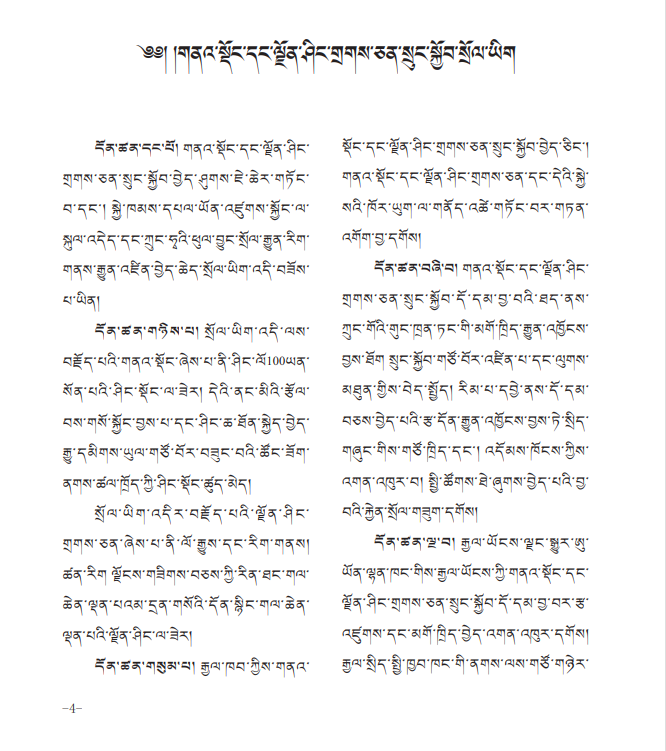 ༄༅། །གནའ་སྡོང་དང་ལྗོན་ཤིང་གྲགས་ཅན་སྲུང་སྐྱོབ་སྲོལ་ཡིག
དོན་ཚན་དང་པོ། གནའ་སྡོང་དང་ལྗོན་ཤིང་
གྲགས་ཅན་སྲུང་སྐྱོབ་བྱེད་ཤུགས་ཇེ་ཆེར་གཏོང་
བ་དང་། སྐྱེ་ཁམས་དཔལ་ཡོན་འཛུགས་སྐྱོང་ལ་
སྐུལ་འདེད་དང་ཀྲུང་ཧྭའི་ཕུལ་བྱུང་སྲོལ་རྒྱུན་རིག་
གནས་རྒྱུན་འཛིན་བྱེད་ཆེད་སྲོལ་ཡིག་འདི་བཟོས་
པ་ཡིན།
དོན་ཚན་གཉིས་པ། སྲོལ་ཡིག་འདི་ལས་
བརྗོད་པའི་གནའ་སྡོང་ཞེས་པ་ནི་ཤིང་ལོ100ཡན་
སོན་པའི་ཤིང་སྡོང་ལ་ཟེར། དེའི་ནང་མིའི་རྩོལ་
བས་གསོ་སྐྱོང་བྱས་པ་དང་ཤིང་ཆ་ཐོན་སྐྱེད་བྱེད་
རྒྱུ་དམིགས་ཡུལ་གཙོ་བོར་བཟུང་བའི་ཚོང་ཟོག་
ནགས་ཚལ་ཁྲོད་ཀྱི་ཤིང་སྡོང་ཚུད་མེད།
སྲོལ་ཡིག་འདིར་བརྗོད་པའི་ལྗོན་ཤིང་
གྲགས་ཅན་ཞེས་པ་ནི་ལོ་རྒྱུས་དང་རིག་གནས།
ཚན་རིག ལྗོངས་གཟིགས་བཅས་ཀྱི་རིན་ཐང་གལ་
ཆེན་ལྡན་པའམ་དྲན་གསོའི་དོན་སྙིང་གལ་ཆེན་
ལྡན་པའི་ལྗོན་ཤིང་ལ་ཟེར།
དོན་ཚན་གསུམ་པ། རྒྱལ་ཁབ་ཀྱིས་གནའ་
སྡོང་དང་ལྗོན་ཤིང་གྲགས་ཅན་སྲུང་སྐྱོབ་བྱེད་ཅིང་།
གནའ་སྡོང་དང་ལྗོན་ཤིང་གྲགས་ཅན་དང་དེའི་སྐྱེ་
སའི་ཁོར་ཡུག་ལ་གནོད་འཚེ་གཏོང་བར་གཏན་
འགོག་བྱ་དགོས།
དོན་ཚན་བཞི་བ། གནའ་སྡོང་དང་ལྗོན་ཤིང་
གྲགས་ཅན་སྲུང་སྐྱོབ་དོ་དམ་བྱ་བའི་ཐད་ནས་
ཀྲུང་གོའི་གུང་ཁྲན་ཏང་གི་མགོ་ཁྲིད་རྒྱུན་འཁྱོངས་
བྱས་ཐོག སྲུང་སྐྱོབ་གཙོ་བོར་འཛིན་པ་དང་ལུགས་
མཐུན་གྱིས་བེད་སྤྱོད། རིམ་པ་དབྱེ་ནས་དོ་དམ་
བཅས་བྱེད་པའི་རྩ་དོན་རྒྱུན་འཁྱོངས་བྱས་ཏེ་སྲིད་
གཞུང་གིས་གཙོ་ཁྲིད་དང་། འདོམས་ཁོངས་ཀྱིས་
འགན་འཁུར་བ། སྤྱི་ཚོགས་ཐེ་ཞུགས་བྱེད་པའི་བྱ་
བའི་རྐྱེན་སྲོལ་གཟུག་དགོས།
དོན་ཚན་ལྔ་བ། རྒྱལ་ཡོངས་ལྗང་སྒྱུར་ཨུ་
ཡོན་ལྷན་ཁང་གིས་རྒྱལ་ཡོངས་ཀྱི་གནའ་སྡོང་དང་
ལྗོན་ཤིང་གྲགས་ཅན་སྲུང་སྐྱོབ་དོ་དམ་བྱ་བར་རྩ་
འཛུགས་དང་མགོ་ཁྲིད་བྱེད་འགན་འཁུར་དགོས།
རྒྱལ་སྲིད་སྤྱི་ཁྱབ་ཁང་གི་ནགས་ལས་གཙོ་གཉེར་
-4-